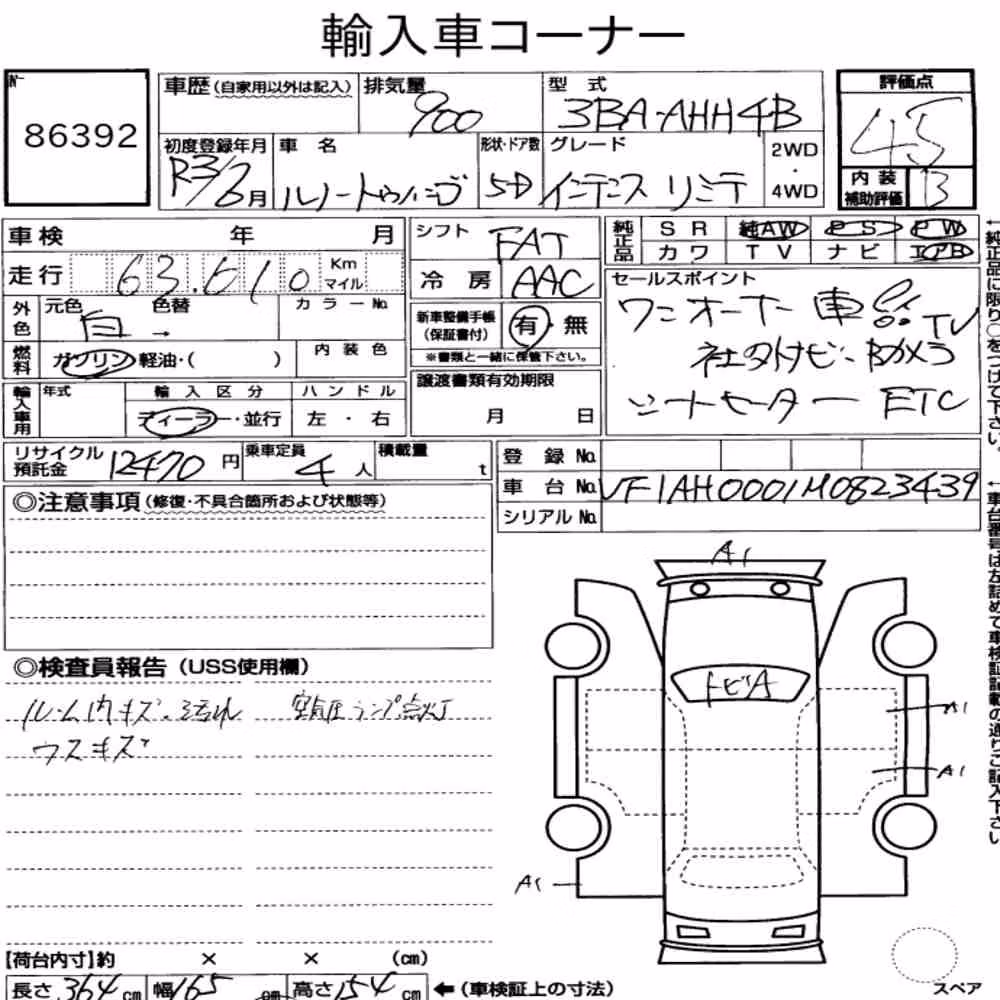 輸入車コーナー
86392
車歴(自家用以外は記入) 排気量 900 型式 3BA-AHH4B
評価点 4.5
内装補助評価 B
初度登録年月 R3/6月 車名 ルノートゥインゴ 形状・ドア数 5D グレード インテンス リミテ 2WD・4WD
車検 年 月
走行 63,610 Km マイル
外色 元色 白 色替 → カラーNo.
燃料 ガソリン・軽油・( ) 内装色
輸入車用 年式 輸入区分 ディーラー・並行 ハンドル 左・右
シフト FAT
冷房 AAC
新車整備手帳(保証書付) 有・無
※書類と一緒に保管下さい。
譲渡書類有効期限
月 日
純正品 SR 純AW PS PW
カワ TV ナビ エアB
セールスポイント
ワンオーナー車 TV
社外ナビ・Bカメラ
シートヒーター ETC
←純正品に限り○をつけて下さい。
リサイクル預託金 12470円 乗車定員 4人 積載量 t
登録No.
車台No. VF1AH0001M0823439
シリアルNo.
←車台番号は左詰めで車検証記載の通りご記入下さい
◎注意事項(修復・不具合箇所および状態等)
◎検査員報告(USS使用欄)
ルーム内キズ・汚れ 空気圧ランプ点灯
ウスキズ
A1
トビA
A1
A1
A1
スペア
【荷台内寸】約 × × (cm)
長さ 364cm 幅 165cm 高さ 154cm ←(車検証上の寸法)